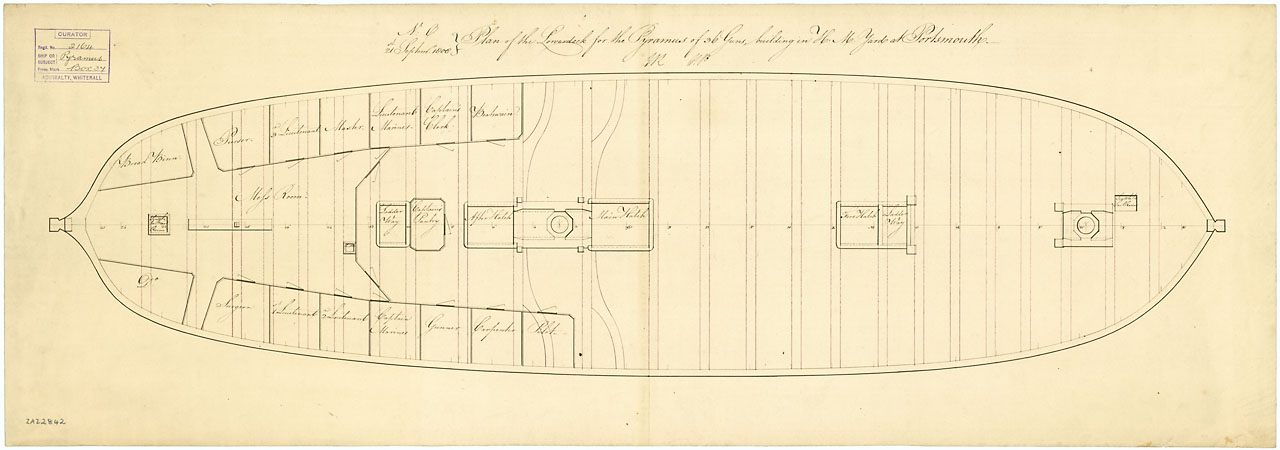 CURATOR
Regd. No. 2164
SHIP OR SUBJECT Pyramus
Box 37
ADMIRALTY, WHITEHALL
Plan of the Lowerdeck for the Pyramus of 36 Guns, building in H. M. Yard at Portsmouth
21 Septbr. 1808
Bread Binn
Purser
3d Lieutenant
Master
Lieutenant Marines
Captains Clerk
Mess Room
Ladder Way
Captains Pantry
After Hatch
Main Hatch
Fore Hatch
Ladder Way
Do
Surgeon
1st Lieutenant
2d Lieutenant
Captain Marines
Gunner
Carpenter
Pilot